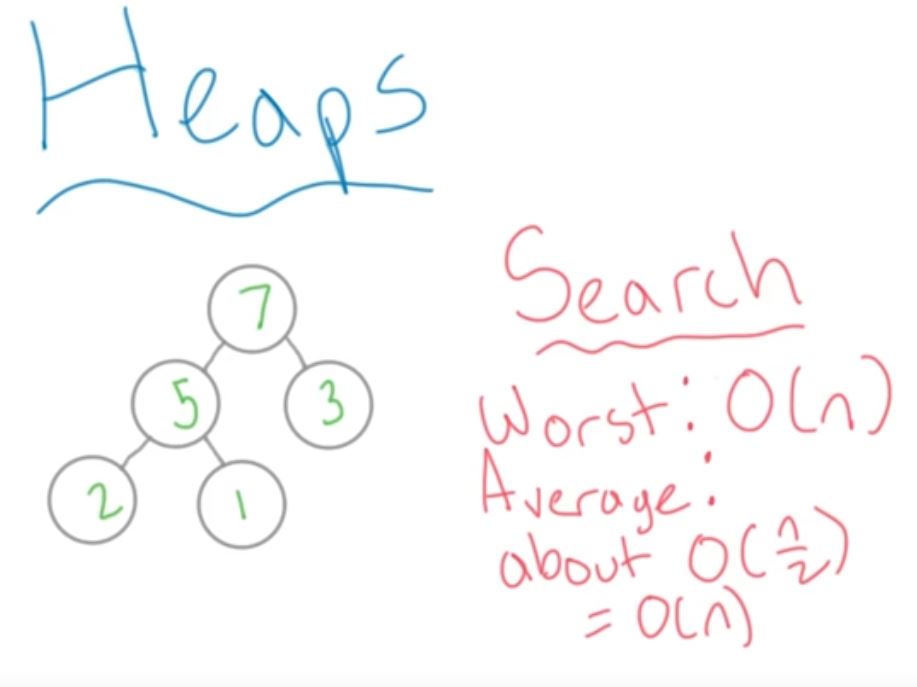 Heaps
7
5 3
2 1
Search
Worst: O(n)
Average:
about O(n/2)
= O(n)